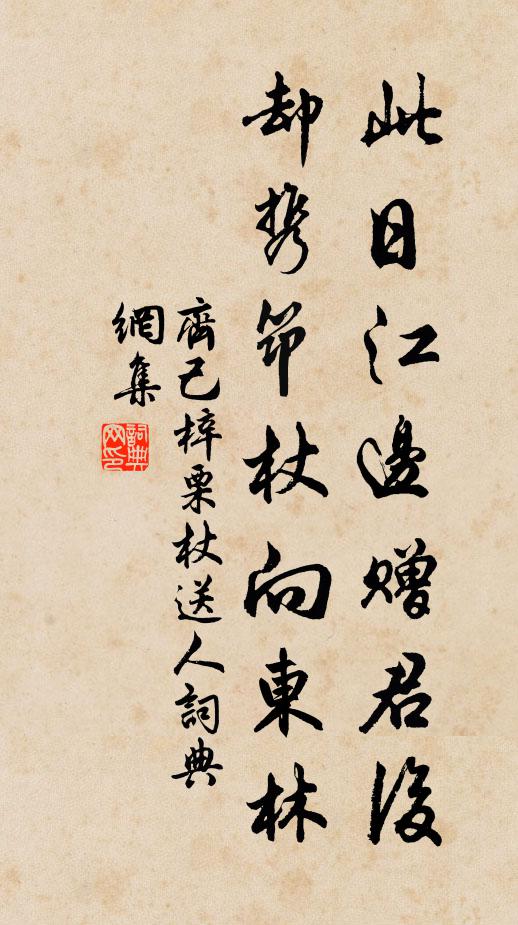 此日江邊贈君後
却携筇杖向東林
齊己梓栗杖送人詞典
網集
詞典
网印